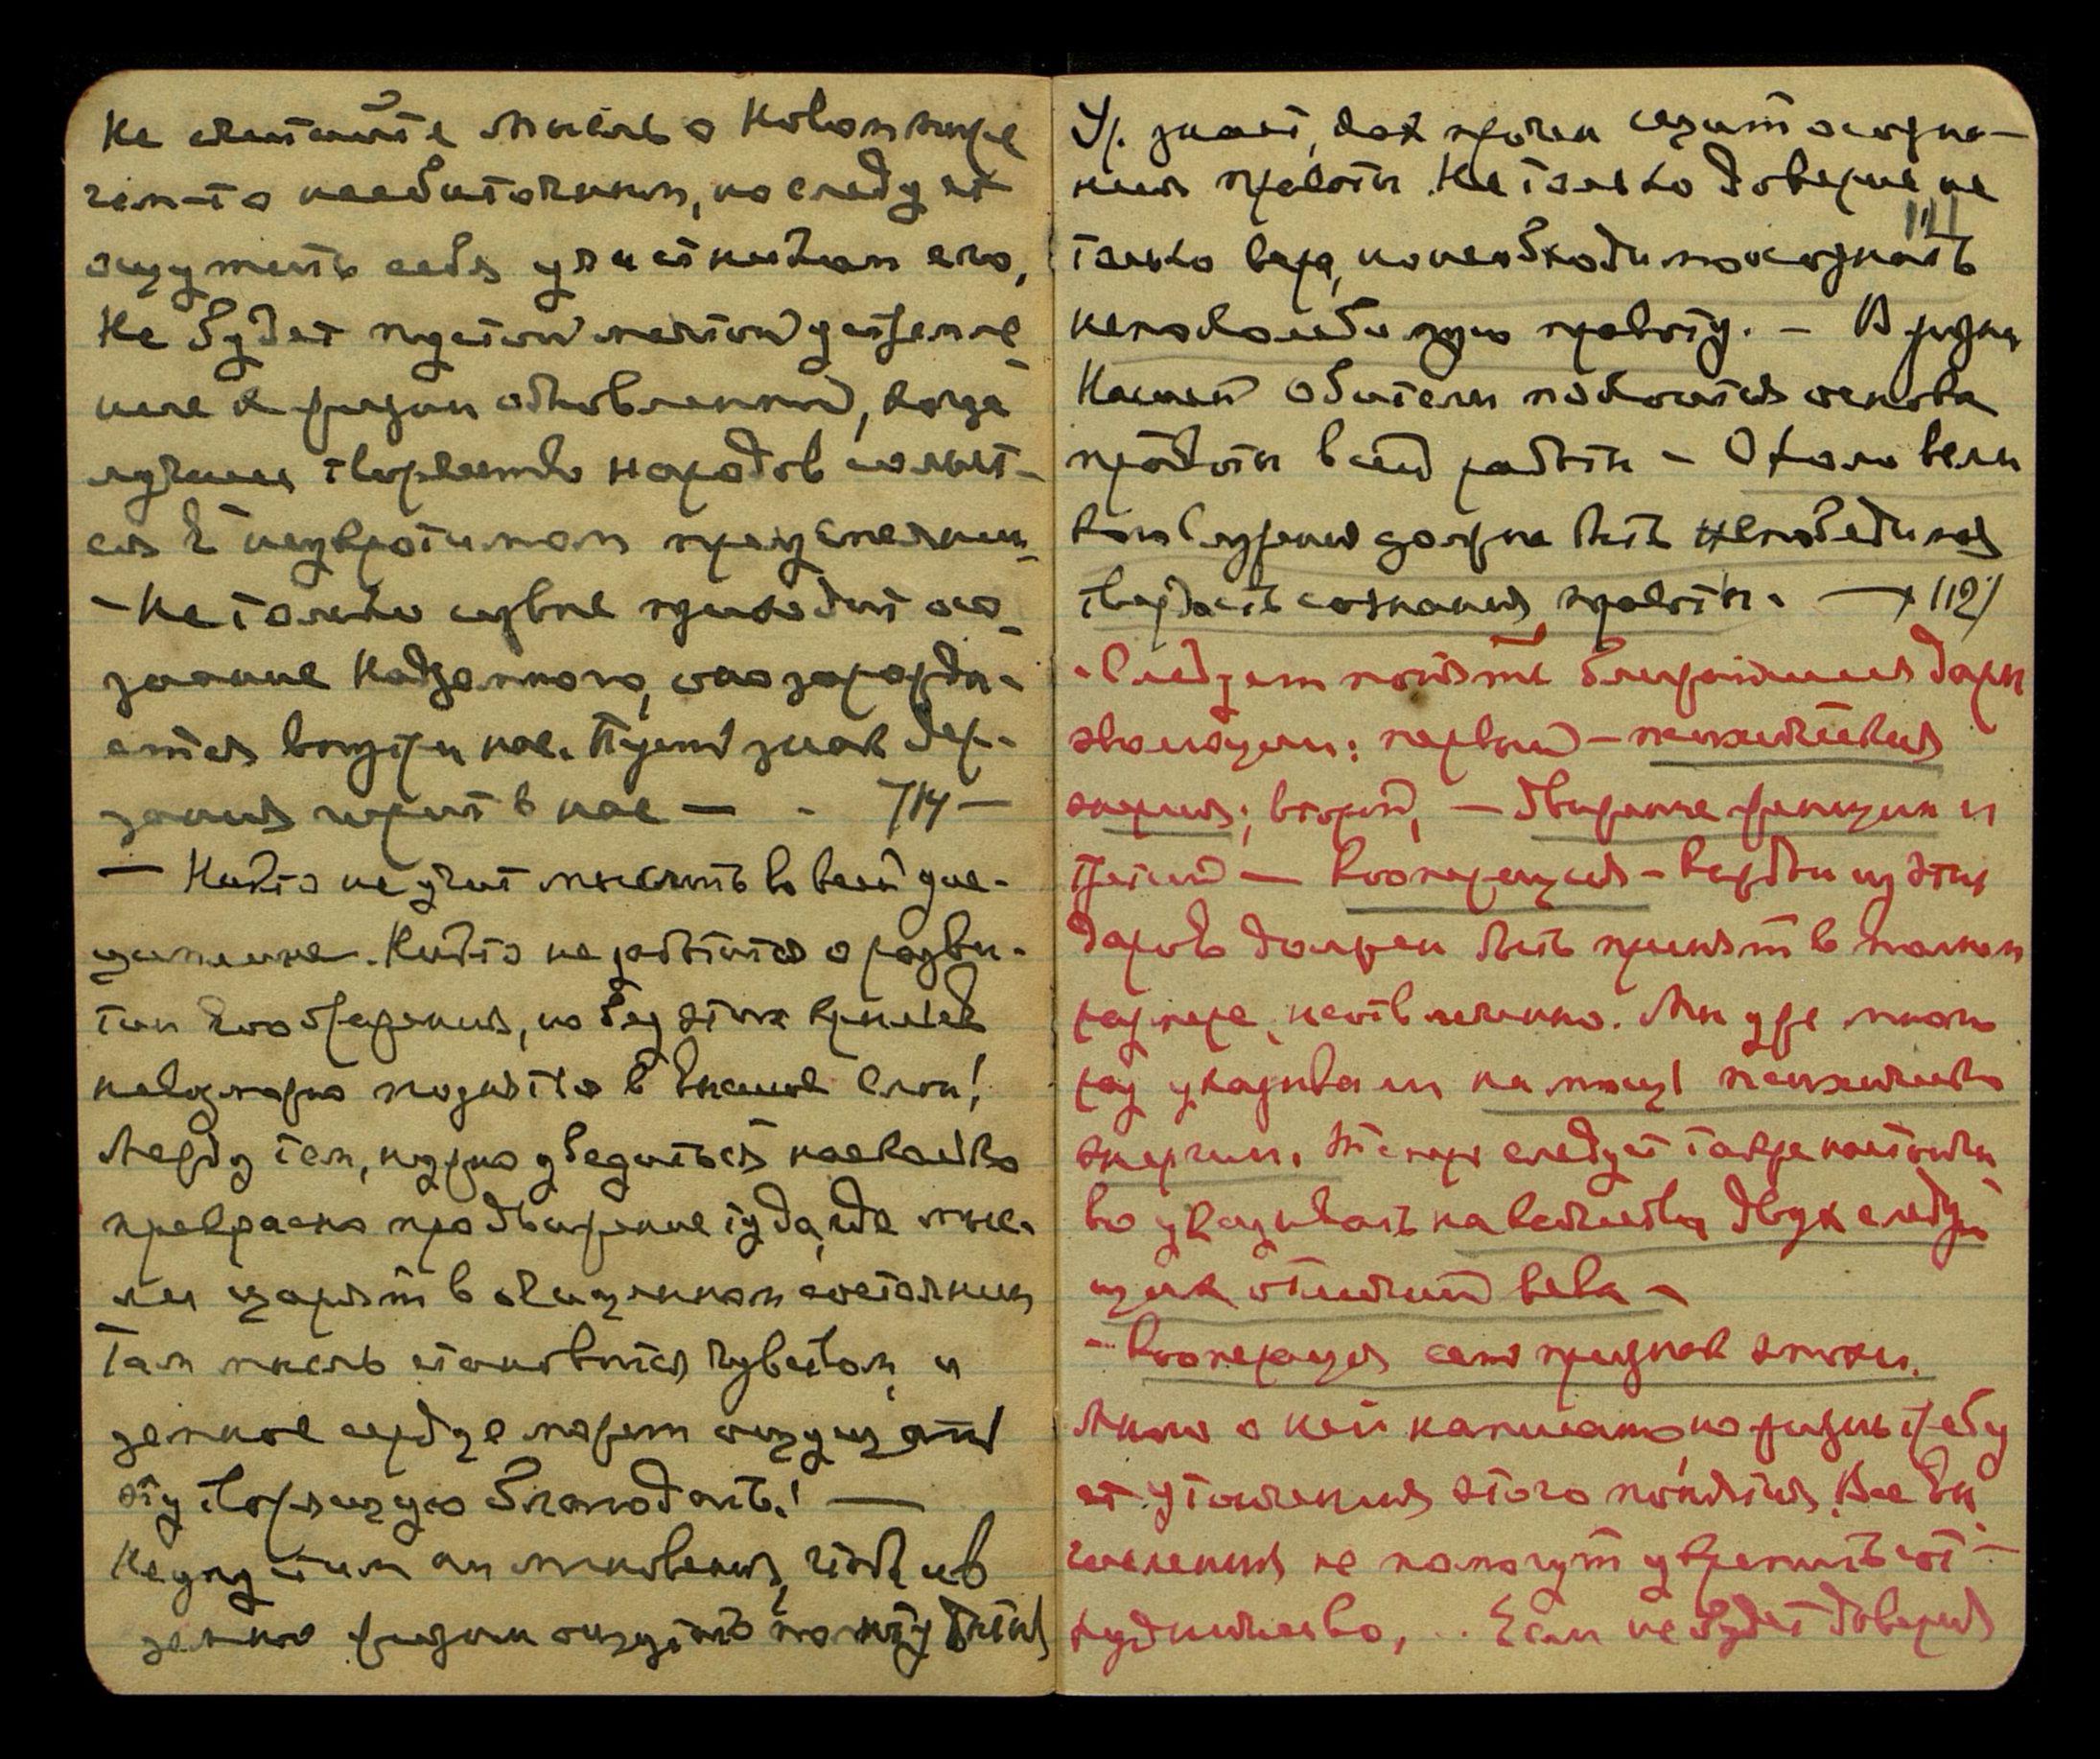 Не считайте мысль о Новом мире
чем-то несбыточным, но следует
ощутить себя участником его,
Не будет пустой мечтой устремле-
ние к жизни обновленной, когда
лучшее творчество народов сольет-
ся в неукротимом преуспеянии.
- Не только извне приходит осо-
знание Надземного, оно зарожда-
ется внутри нас. Пусть знак дер-
зания горит в нас — - 714 —
— Никто не учит мыслить во всей дис-
циплине. Никто не заботится о разви-
тии воображения, но без этих крыльев
невозможно подняться в высшие слои!
Между тем, нужно убедиться насколько
прекрасно продвижение туда, где мыс-
ли царят в очищенном состоянии
Там мысль становится чувством, и
земное сердце может ощущать
эту творящую благодать! —
Не упустим ни мгновения, чтоб из
земной жизни ощутить
Ур. знает, как прочен щит осозна-
ния правоты. Не только доверие не
только вера, но необходимо осознать
непоколебимую правоту. – В жизни
Нашей Обители находится основа
правоты всей работы – Около вели
кого служения должна быть непобедимая
твердость сознания правоты. → 112/
- Следует понять ближайшие дары
эволюции: первый – психическая
энергия; второй, – движение женщин и
третий — кооперация – каждый из этих
даров должен быть принят в полном
размере, неотвлеченно. Мы уже много
раз указывали на мощь психической
энергии. Теперь следует также настойчи
во указывать на качества двух следую
щих отличий века –
– Кооперация есть признак эпохи.
Много о ней написано, но жизнь требу
ет уточнения этого понятия. Все вы
числения не помогут укрепить сот-
рудничество, .. Если не будет доверия